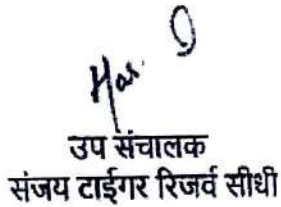 उप संचालक
संजय टाईगर रिजर्व सीधी